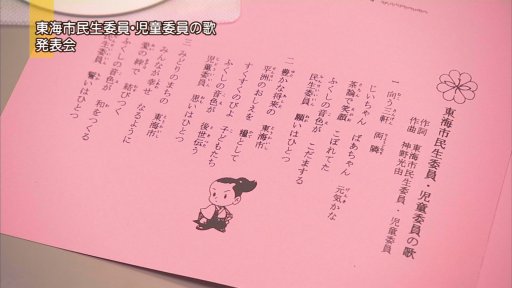 東海市民生委員・児童委員の歌
発表会
東海市民生委員・児童委員の歌
作詞 東海市民生委員・児童委員
作曲 神野光由
一 向う三軒 両隣
じいちゃん ばあちゃん 元気かな
茶論で笑顔 こぼれてた
ふくしの音色が こだまする
民生委員 願いはひとつ
二 豊かな将来の 東海市
平洲のおしえを 種として
すくすくのびよ 子どもたち
ふくしの音色が 後世伝う
児童委員 思いはひとつ
三 みどりのまちの 東海市
みんなが幸せ なるように
愛の絆で 結びつく
ふくしの音色が 和をつくる
民生委員 誓いはひとつ